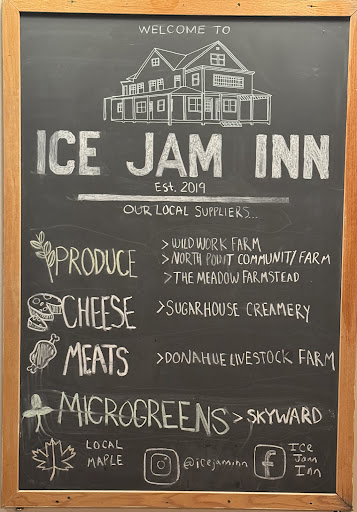 WELCOME TO
ICE JAM INN
EST. 2019
OUR LOCAL SUPPLIERS...
PRODUCE
>WILD WORK FARM
>NORTH POINT COMMUNITY FARM
>THE MEADOW FARMSTEAD
CHEESE >SUGARHOUSE CREAMERY
MEATS >DONAHUE LIVESTOCK FARM
MICROGREENS > SKYWARD
LOCAL
MAPLE
@icejaminn
ICE
JAM
INN